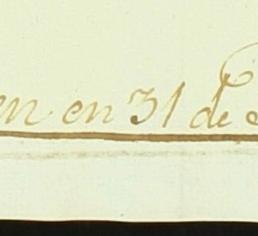 en en 31 de